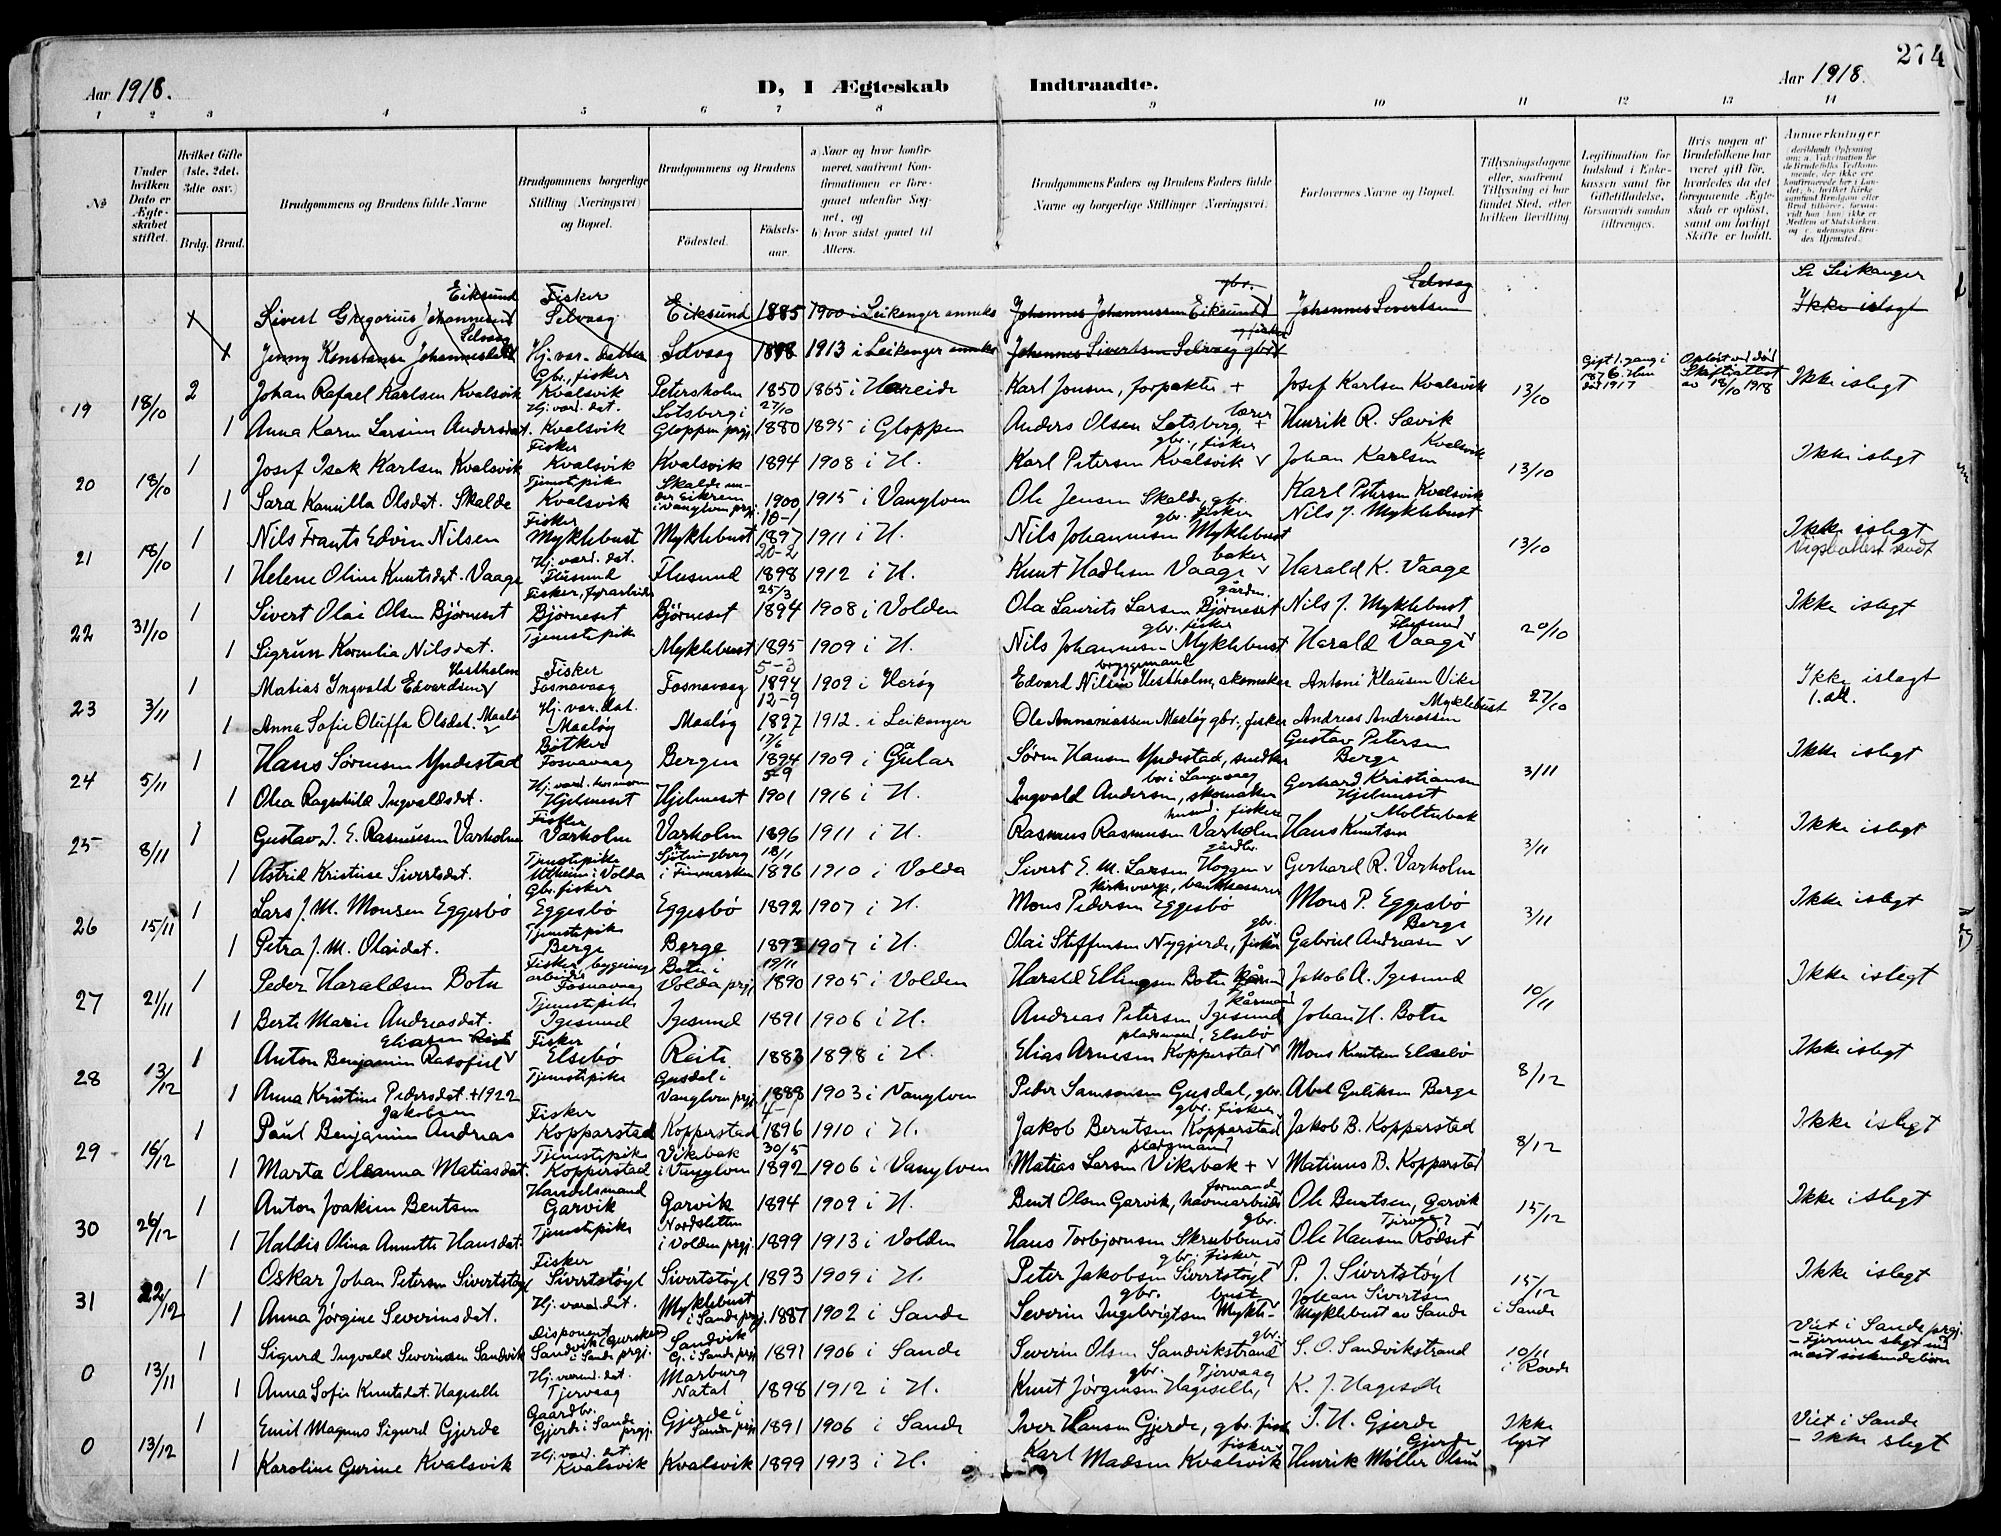 274
Aar 1918.
D, I Ægteskab Indtraadte.
Aar 1918.
1 2 3 4 5 6 7 8 9 10 11 12 13 14
№
Under hvilken Dato er Ægteskabet stiftet.
Hvilket Gifte (1ste. 2det. 3die osv.)
Brdg. Brud.
Brudgommens og Brudens fulde Navne
Brudgommens borgerlige Stilling (Næringsvei) og Bopæl.
Brudgommens og Brudens
Fødested. Fødselsaar.
a) Naar og hvor konfirmeret, saafremt Konfirmationen er foregaaet udenfor Sognet, og
b) hvor sidst gaaet til Alters.
Brudgommens Faders og Brudens Faders fulde Navne og borgerlige Stillinger (Næringsvei).
Forlovernes Navne og Bopæl.
Tillysningsdagene eller, saafremt Tillysning ei har fundet Sted, efter hvilken Bevilling
Legitimation for Indskud i Enkekassen samt for Giftetilladelse, forsaavidt saadan tiltrænges.
Hvis nogen af Brudefolkene har været gift før, hvorledes da det foregaaende Ægteskab er opløst, samt om lovligt Skifte er holdt.
Anmerkninger
Sivert Gregorius Johannesen Eiksund Fisker Selvaag Eiksund 1885 1900 i Leikanger anneks Johannes Johannessen Eiksund gbr. Johannes Sivertsen Selvaag Ikke islegt
Se Leikanger
Jenny Konstanse Johannesdat. Selvaag Hj. var. datter Selvaag 1898 1913 i Leikanger anneks Johannes Sivertsen Selvaag gbr. og fisker
19 18/10 2 Johan Rafael Karlsen Kvalsvik Gbr., fisker Kvalsvik Petersholm 1850 1865 i Hareide Karl Jonsen, forpakter + Josef Karlsen Kvalsvik 13/10 Gift 1. gang i 1876. Hun død 1917 Opløst ved død Skifteattest av 18/10 1918 Ikke islegt
1 Anna Karen Larsine Andersdat. Hj. vær. dat. Kvalsvik Lotsberg i Gloppen prgj. 27/10 1880 1895 i Gloppen Anders Olsen Lotsberg, lærer + Henrik R. Sævik
20 18/10 1 Josef Isak Karlsen Kvalsvik Fisker Kvalsvik Kvalsvik 1894 1908 i H. Karl Petersen Kvalsvik gbr., fisker Johan Karlsen Kvalsvik 13/10 Ikke islegt
1 Sara Kamilla Olsdat. Skalde Tjenestepike Kvalsvik Skalde under Eikrem i Vanylven prgj. 1900 1915 i Vanylven Ole Jensen Skalde, gbr. Karl Petersen Kvalsvik
21 18/10 1 Nils Frants Edvin Nilsen Fisker Myklebust Myklebust 10-1 1897 1911 i H. Nils Johannesen Myklebust gbr. fisker Nils J. Myklebust 13/10 Ikke islegt
1 Helene Oline Knutsdat. Vaage Hj. værd. dat. Flusund Flusund 20-2 1898 1912 i H. Knut Hadlesen Vaage baker Harald K. Vaage
22 31/10 1 Sivert Olai Olsen Bjørneset Fisker, fyrarbeider Bjørneset Bjørneset 25/3 1894 1908 i Volden Ola Laurits Larsen Bjørneset gården. Nils J. Myklebust 20/10 Ikke islegt
1 Sigrun Kornelia Nilsdat. Tjenestepike Myklebust 1895 1909 i H. Nils Johannesen Myklebust gbr. fisker Harald Vaage Flusund
23 3/11 1 Matias Ingvald Edvardsen Vestholm Fisker Fosnavaag Fosnavaag 5-3 1894 1909 i Herøy Edvard Nilsen Vestholm, skomaker Antoni Klausen Vike 27/10 Ikke islegt
1 Anna Sofie Oluffa Olsdat. Maaløy Hj. var. dat. Maaløy Maaløy 12-9 1897 1912. i Leikanger Ole Annaniassen Maaløy gbr., fisker Andreas Andreassen Myklebust
24 5/11 1 Hans Sørensen Yndestad Bøtker Fosnavaag Bergen 17/6 1894 1909 i Gular Søren Hansen Yndestad, snedker Gustav Petersen Berge 3/11 Ikke islegt
1 Olea Ragnhild Ingvaldsdat. Hj. værd. Hjelmeset Hjelmeset 5-9 1901 1916 i H. Ingvald Andersen, skomaker bor i Langevaag Gerhard Kristiansen Hjelmeset
25 8/11 1 Gustav J. E. Rasmussen Varholm Fisker Varholm Varholm 1896 1911 i H. Rasmus Rasmussen Varholm fisker Hans Knutsen Moltubak 3/11 Ikke islegt
1 Astrid Kristine Sivertsdat. Tjenestepike i Volda i Finmarken 18/1 1896 1910 i Volda Sivert E. M. Larsen Hoggen gårdbr. Gerhard R. Varholm
26 15/11 1 Lars J. M. Monsen Eggesbø Gbr. fisker Eggesbø Eggesbø 1892 1907 i H. Mons Pedersen Eggesbø kirkeverge, bankkasserer Mons P. Eggesbø 3/11 Ikke islegt
1 Petra J. M. Olaidat. Tjenestepike Berge Berge 1893 1907 i H. Olai Steffensen Nygjerde, gbr. fisker Gabriel Andreasen Berge
27 21/11 1 Peder Haraldsen Botn Fisker, bygningsarbeider Fosnavaag Botn i Volda prgj. 19/11 1890 1905 i Volden Harald Ellingsen Botn Jakob A. Igesund 10/11 Ikke islegt
1 Berte Marie Andreasdat. Tjenestepike Igesund Igesund 1891 1906 i H. Andreas Petersen Igesund kårmand Johan H. Botn
28 13/12 1 Anton Benjamin Rasofiel Eliassen Fisker Elsebø Reite 1883 1898 i H. Elias Arnesen Kopperstad pladsmand, Elsebø Mons Knutsen Elsebø 8/12 Ikke islegt
1 Anna Kristine Pedersdat. +1922 Tjenestepike Gusdal i Vanylven prgj. 1888 1903 i Vanylven Peder Samsonsen Gusdal, gbr. Abel Guliksen Berge
29 16/12 1 Paul Benjamin Andreas Jakobsen Fisker Kopperstad Kopperstad 1896 1910 i H. Jakob Berntsen Kopperstad gbr. fisker Jakob B. Kopperstad 8/12 Ikke islegt
1 Marta Oleanna Matiasdat. Tjenestepike Kopperstad Vikebak i Vanylven 30/5 1892 1906 i Vanylven Matias Larsen Vikebak + pladsmand Matinus B. Kopperstad
30 26/12 1 Anton Joakim Bentsen Handelsmand Garvik Garvik 1894 1909 i H. Bent Olsen Garvik, havnearbeids formand Ole Bentsen, Garvik 15/12 Ikke islegt
1 Haldis Olina Annette Hansdat. Tjenestepike Nordsletten i Volden prgj. 1899 1913 i Volden Hans Torbjørnsen Skrubbenes gbr. Ole Hansen Rødset Tjervaag
31 22/12 1 Oskar Johan Petersen Sivertstøyl Fisker Sivertstøyl Sivertstøyl 1893 1909 i H. Peter Jakobsen Sivertstøyl gbr. fisker P. J. Sivertstøyl 15/12 Ikke islegt
1 Anna Jørgine Severinsdat. Hj. værd. dat. Myklebust i Sande prgj. 1887 1902 i Sande Severin Ingebrigtsen Myklebust gbr. Johan Sivertsen Myklebust av Sande i Sande
0 13/11 1 Sigurd Ingvald Severinsen Sandvik Disponent Sandvik i Gursken i Sande prgj. Sandvik G. i Sande prgj. 1891 1906 i Sande Severin Olsen Sandvikstrand gbr. S. O. Sandvikstrand 10/11 i Rovde Viet i Sande prgj. – Fjernere slegt end næst søskendebørn
1 Anna Sofie Knutsdat. Hageselle Hj. værend. dat. Tjervaag Marburg Natal 1898 1912 i H. Knut Jørgensen Hageselle, gbr. Tjervaag K. J. Hageselle
0 13/12 1 Emil Magnus Sigurd Gjerde Gaardbr. Gjerde i Sande prgj. Gjerde i Sande prgj. 1891 1906 i Sande Iver Hansen Gjerde, gbr. fisker I. H. Gjerde Ikke lyst Viet i Sande – Ikke slegt
1 Karoline Gurine Kvalsvik Hj. værd. dat. Kvalsvik Kvalsvik 1899 1913 i H. Karl Madsen Kvalsvik fisker Henrik Møller Olsen Gjerde